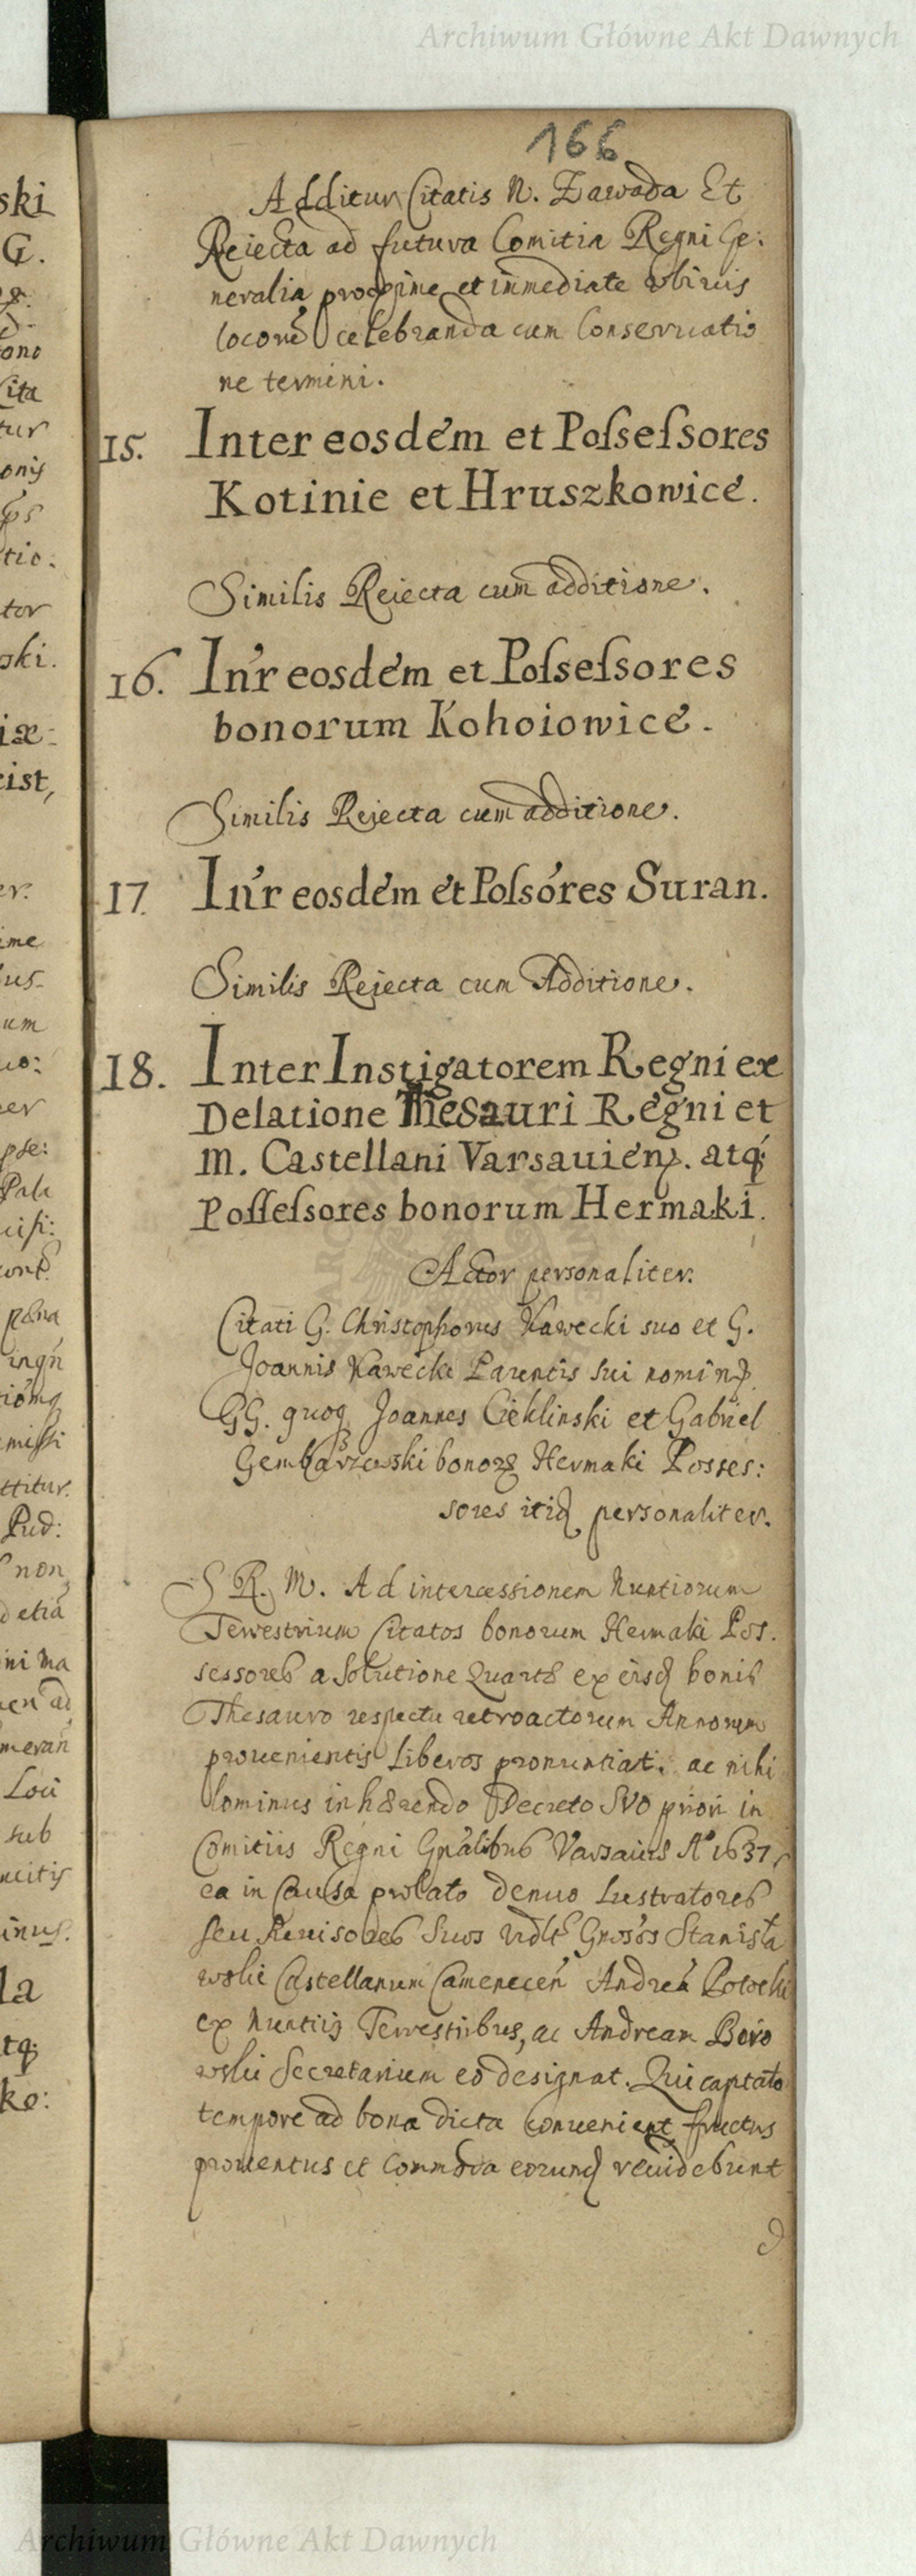 Archiwum Główne Akt Dawnych
166
Additur Citatis N. Zawada Et
Reiecta ad futura Comitia Regni Ge:
neralia proxime et inmediate ubivis
locorũ celebranda cum Conseruatio
ne termini.
15. Inter eosdem et Poſseſsores
Kotinie et Hruszkowice.
Similis Reiecta cum additione.
16. In'r eosdem et Poſseſsores
bonorum Kohoiowice.
Similis Reiecta cum additione.
17 In'r eosdem et Poſsores Suran.
Similis Reiecta cum Additione.
18. Inter Instigatorem Regni ex
Delatione Thesauri Regni et
M. Castellani Varsauien. atq
Poſſeſsores bonorum Hermaki.
Actor personaliter.
Citati G. Christophorus Kawecki suo et G.
Joannis Kawecki Parentis sui nomin
GG. quoq Joannes Cieklinski et Gabriel
Gembarzewski bonor Hermaki Posses:
sores itid personaliter.
S R. M. Ad intercessionem Nuntiorum
Terrestrium Citatos bonorum Hermaki Pos.
sessores a Solutione Quartæ ex eisd bonis
Thesauro respectu retroactorum Annorum
prouenientis Liberos pronuntiat. ac nihi
lominus inhærendo Decreto Suo priori in
Comitiis Regni Gnalibus Varsauiæ Aº 1637
ea in Causa prolato denuo Lustratores
seu Reuisores Suos Gnosos Stanisła
wski Castellanum Camenecen Andreã Potocki
ex Nuntiis Terrestribus, ac Andream Boro
wski Secretarium eo designat. Qui captato
tempore ad bona dicta conuenient fructus
prouentus et Commoda eorund reuidebunt
Archiwum Główne Akt Dawnych